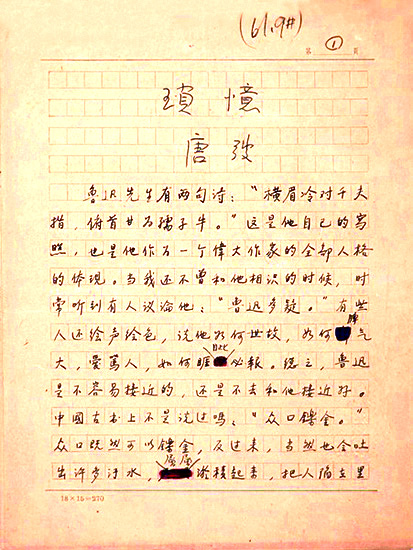 (61.9#)
第 ① 页
瑣憶
唐弢
魯迅先生有两句诗："横眉冷对千夫
指，俯首甘为孺子牛。"这是他自己的写
照，也是他作为一个偉大作家的全部人格
的体现。当我还不曾和他相识的时候，时
常听到有人议论他："鲁迅多疑。"有些
人还绘声绘色，说他如何世故，如何脾气
大，爱罵人，如何睚眦必報。總之，鲁迅
是不容易接近的，还是不去和他接近好。
中國古書上不是说过嗎："众口鑠金。"
众口既然可以鑠金，反过来，当然也会吐
出许多汙水，层层淤積起来，把人陷在里
18×15=270